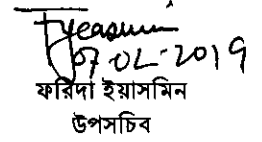 Fyeasmin
07-02-2019
ফরিদা ইয়াসমিন
উপসচিব